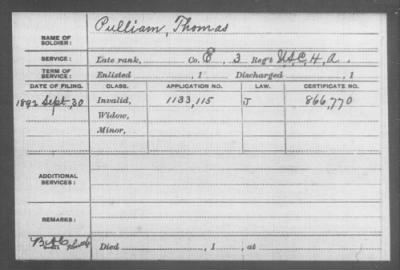 NAME OF SOLDIER: Pulliam, Thomas
SERVICE: Late rank, Co. E, 3 Reg't U.S.C.H.A.
TERM OF SERVICE: Enlisted , 1 Discharged , 1
DATE OF FILING. CLASS. APPLICATION NO. LAW. CERTIFICATE NO.
1892 Sept. 30 Invalid, 1133,115 J 866,770
Widow,
Minor,
ADDITIONAL SERVICES:
REMARKS:
Died , 1 , at